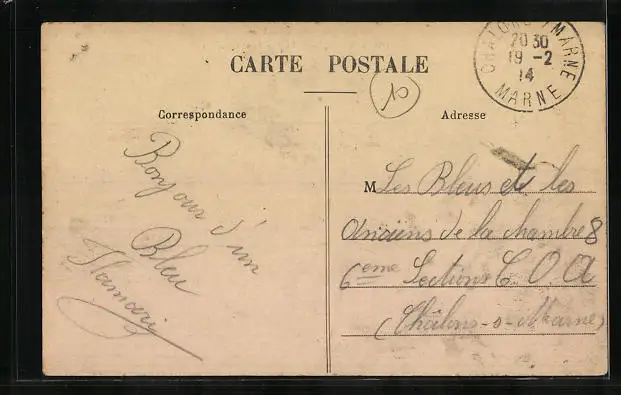 CARTE POSTALE
CHALONS S MARNE
20 30
19 -2
14
MARNE
10
Correspondance
Bonjour d'un
Bleu
Adresse
M Les Bleus et les
Anciens de la chambre 8
6eme Section C. O. A
(Châlons-s-Marne)